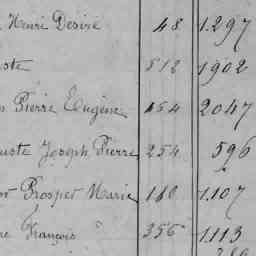 Henri Desiré 48 1.297
ste 512 1902
Pierre Eugène 454 2047
uste Joseph Pierre 254 596
Prosper Marie 160 1.107
François 356 1113